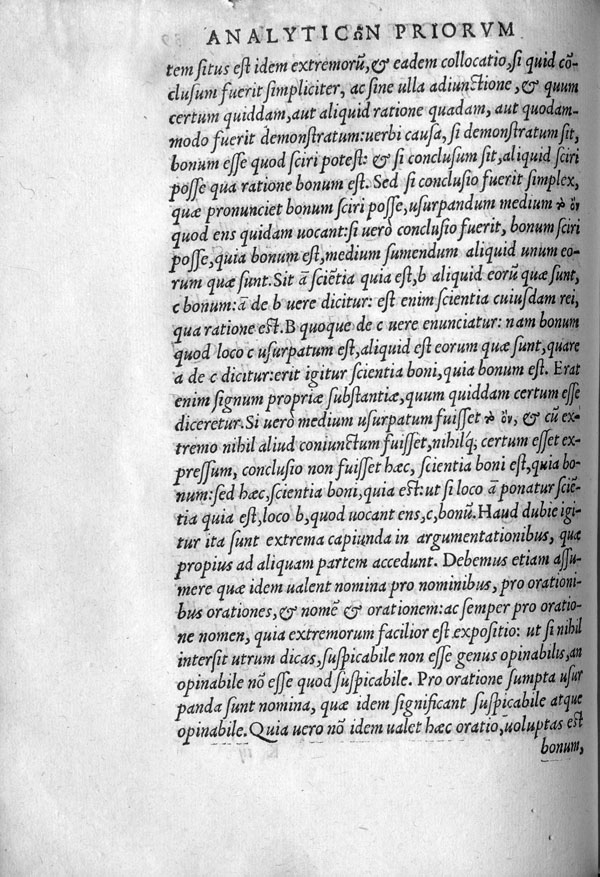 ANALYTICωN PRIORVM
tem situs est idem extremorũ, & eadem collocatio, si quid cõ-
clusum fuerit simpliciter, ac sine ulla adiunctione, & quum
certum quiddam, aut aliquid ratione quadam, aut quodam-
modo fuerit demonstratum: uerbi causa, si demonstratum sit,
bonum esse quod sciri potest: & si conclusum sit, aliquid sciri
posse qua ratione bonum est. Sed si conclusio fuerit simplex,
quæ pronunciet bonum sciri posse, usurpandum medium τὸ ὂν
quod ens quidam uocant: si uerò conclusio fuerit, bonum sciri
posse, quia bonum est, medium sumendum aliquid unum eo-
rum quæ sunt. Sit ā sciētia quia est, b aliquid eorũ quæ sunt,
c bonum: ā de b uere dicitur: est enim scientia cuiusdam rei,
qua ratione est. B quoque de c uere enunciatur: nam bonum
quod loco c usurpatum est, aliquid est eorum quæ sunt, quare
a de c dicitur: erit igitur scientia boni, quia bonum est. Erat
enim signum propriæ substantiæ, quum quiddam certum esse
diceretur. Si uerò medium usurpatum fuisset τὸ ὂν, & cũ ex-
tremo nihil aliud coniunctum fuisset, nihilq; certum esset ex-
pressum, conclusio non fuisset hæc, scientia boni est, quia bo-
num: sed hæc, scientia boni, quia est: ut si loco ā ponatur sciē-
tia quia est, loco b, quod uocant ens, c, bonũ. Haud dubie igi-
tur ita sunt extrema capiunda in argumentationibus, quæ
propius ad aliquam partem accedunt. Debemus etiam assu-
mere quæ idem ualent nomina pro nominibus, pro orationi-
bus orationes, & nomē & orationem: ac semper pro oratio-
ne nomen, quia extremorum facilior est expositio: ut si nihil
intersit utrum dicas, suspicabile non esse genus opinabilis, an
opinabile nõ esse quod suspicabile. Pro oratione sumpta usur
panda sunt nomina, quæ idem significant suspicabile atque
opinabile. Quia uero nõ idem ualet hæc oratio, uoluptas est
bonum,